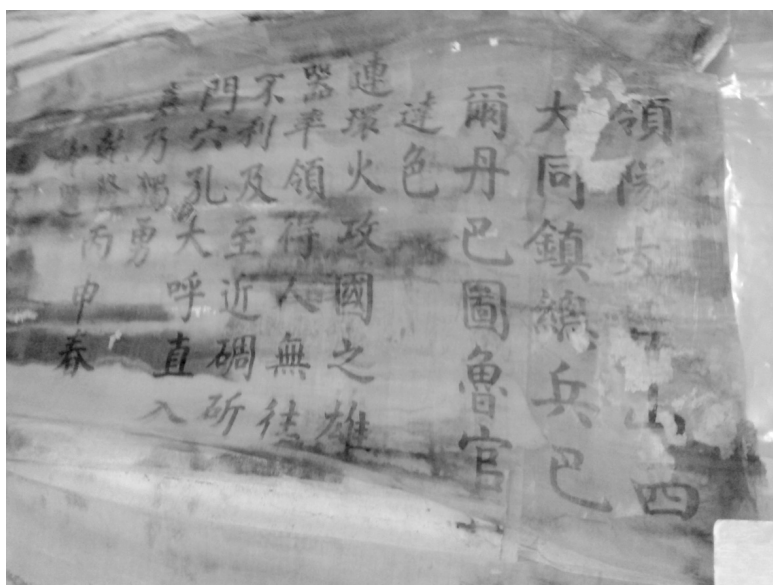 領隊大臣山西
大同鎮總兵巴
爾丹巴圖魯官
達色
連環火攻國之雄
器率領得人無往
不利及至近碉斫
門穴孔大呼直入
真乃獨勇
乾隆丙申春